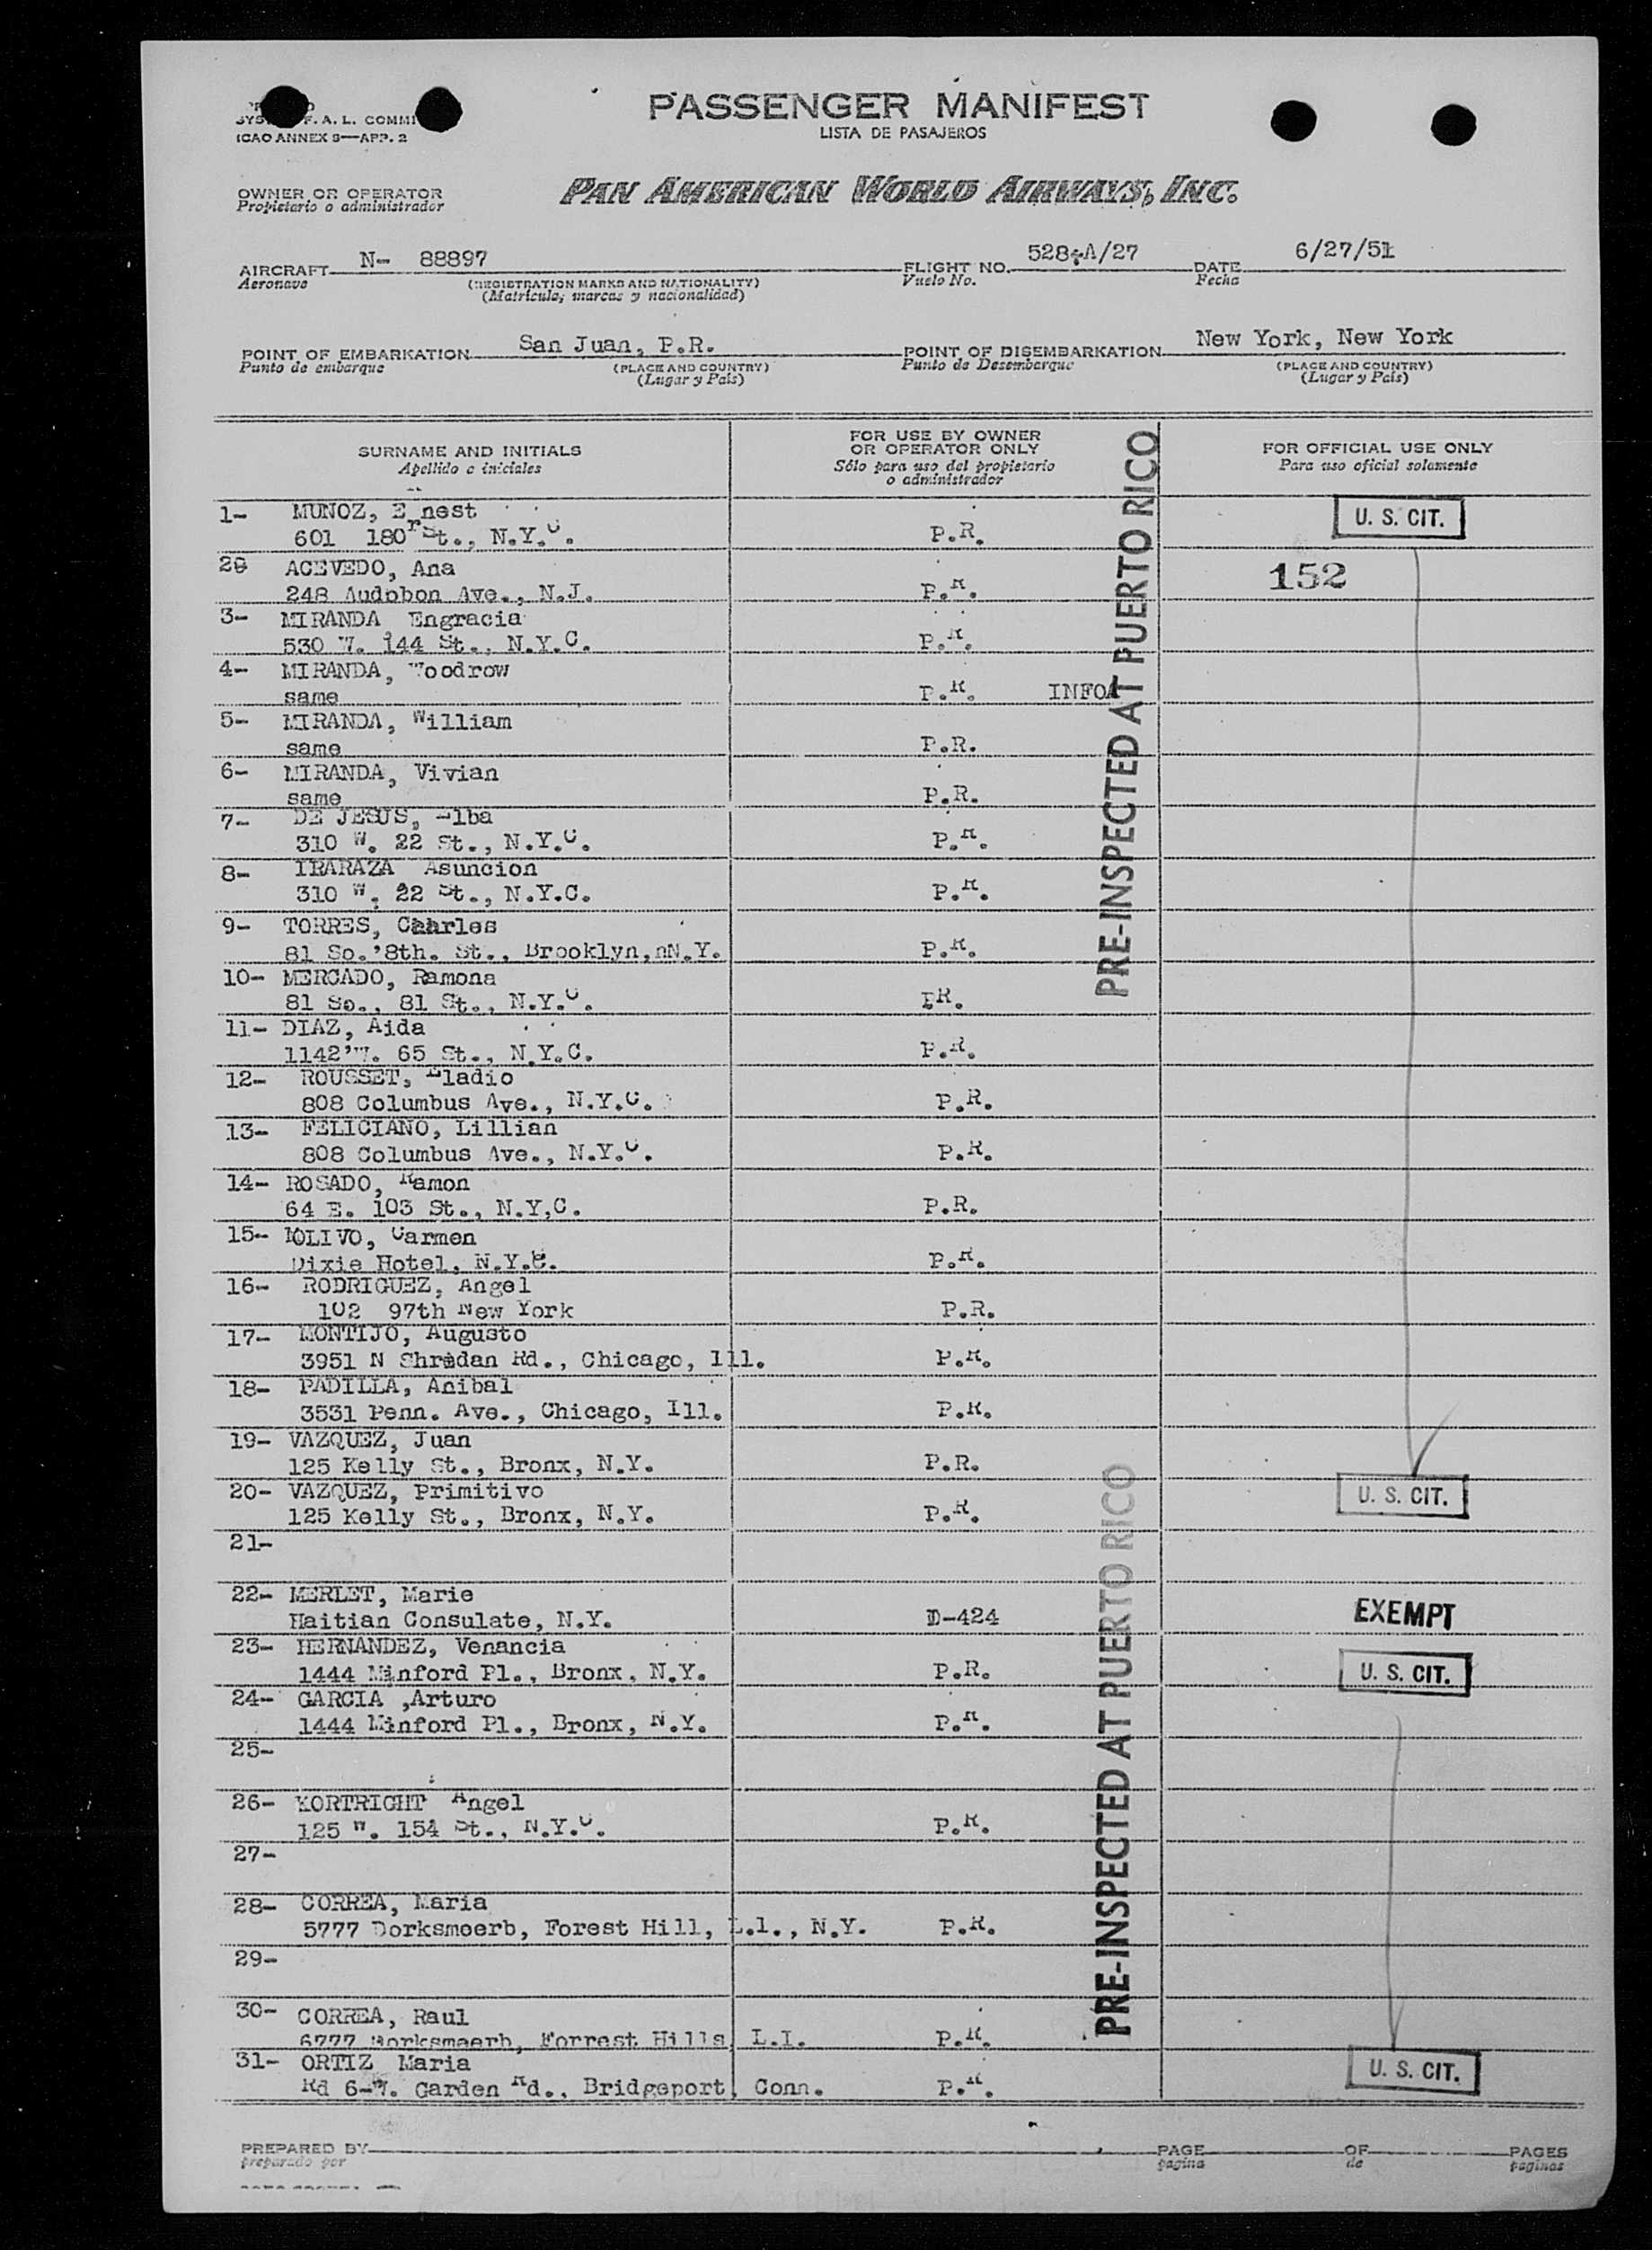 F. A. L. COMMI
ICAO ANNEX 9—APP. 2
PASSENGER MANIFEST
LISTA DE PASAJEROS
OWNER OR OPERATOR
Propietario o administrador
PAN AMERICAN WORLD AIRWAYS, INC.
AIRCRAFT N- 88897 FLIGHT NO. 528-A/27 DATE 6/27/51
Aeronave (REGISTRATION MARKS AND NATIONALITY) Vuelo No. Fecha
(Matrícula, marcas y nacionalidad)
POINT OF EMBARKATION San Juan, P.R. POINT OF DISEMBARKATION New York, New York
Punto de embarque (PLACE AND COUNTRY) Punto de Desembarque (PLACE AND COUNTRY)
(Lugar y País) (Lugar y País)
SURNAME AND INITIALS
Apellido e iniciales
FOR USE BY OWNER
OR OPERATOR ONLY
Sólo para uso del propietario
o administrador
FOR OFFICIAL USE ONLY
Para uso oficial solamente
PRE-INSPECTED AT PUERTO RICO
1- MUNOZ, Ernest U. S. CIT.
601 180 St., N.Y.C. P.R.
2- ACEVEDO, Ana 152
248 Audobon Ave., N.J. P.R.
3- MIRANDA Engracia
530 W. 144 St., N.Y.C. P.R.
4- MIRANDA, Woodrow
same P.R. INFOA
5- MIRANDA, William
same P.R.
6- MIRANDA, Vivian
same P.R.
7- DE JESUS, Elba
310 W. 22 St., N.Y.C. P.R.
8- IRARAZA Asuncion
310 W. 22 St., N.Y.C. P.R.
9- TORRES, Charles
81 So. 8th. St., Brooklyn, nN.Y. P.R.
10- MERCADO, Ramona
81 So., 81 St., N.Y.C. PR.
11- DIAZ, Aida
1142 W. 65 St., N.Y.C. P.R.
12- ROUSSET, Eladio
808 Columbus Ave., N.Y.C. P.R.
13- FELICIANO, Lillian
808 Columbus Ave., N.Y.C. P.R.
14- ROSADO, Ramon
64 E. 103 St., N.Y,C. P.R.
15- OLIVO, Carmen
Dixie Hotel, N.Y.C. P.R.
16- RODRIGUEZ, Angel
102 97th New York P.R.
17- MONTIJO, Augusto
3951 N Shredan Rd., Chicago, Ill. P.R.
18- PADILLA, Anibal
3531 Penn. Ave., Chicago, Ill. P.R.
19- VAZQUEZ, Juan
125 Kelly St., Bronx, N.Y. P.R.
20- VAZQUEZ, Primitivo U. S. CIT.
125 Kelly St., Bronx, N.Y. P.R.
21-
PRE-INSPECTED AT PUERTO RICO
22- MERLET, Marie
Haitian Consulate, N.Y. D-424 EXEMPT
23- HERNANDEZ, Venancia
1444 Minford Pl., Bronx, N.Y. P.R. U. S. CIT.
24- GARCIA ,Arturo
1444 Minford Pl., Bronx, N.Y. P.R.
25-
26- KORTRIGHT Angel
125 W. 154 St., N.Y.C. P.R.
27-
28- CORREA, Maria
5777 Dorksmoerb, Forest Hill, L.I., N.Y. P.R.
29-
30- CORREA, Raul
6777 Forrest Hills, L.I. P.R.
31- ORTIZ Maria
Rd 6-W. Garden Rd., Bridgeport, Conn. P.R. U. S. CIT.
PREPARED BY PAGE OF PAGES
preparado por pagina de paginas